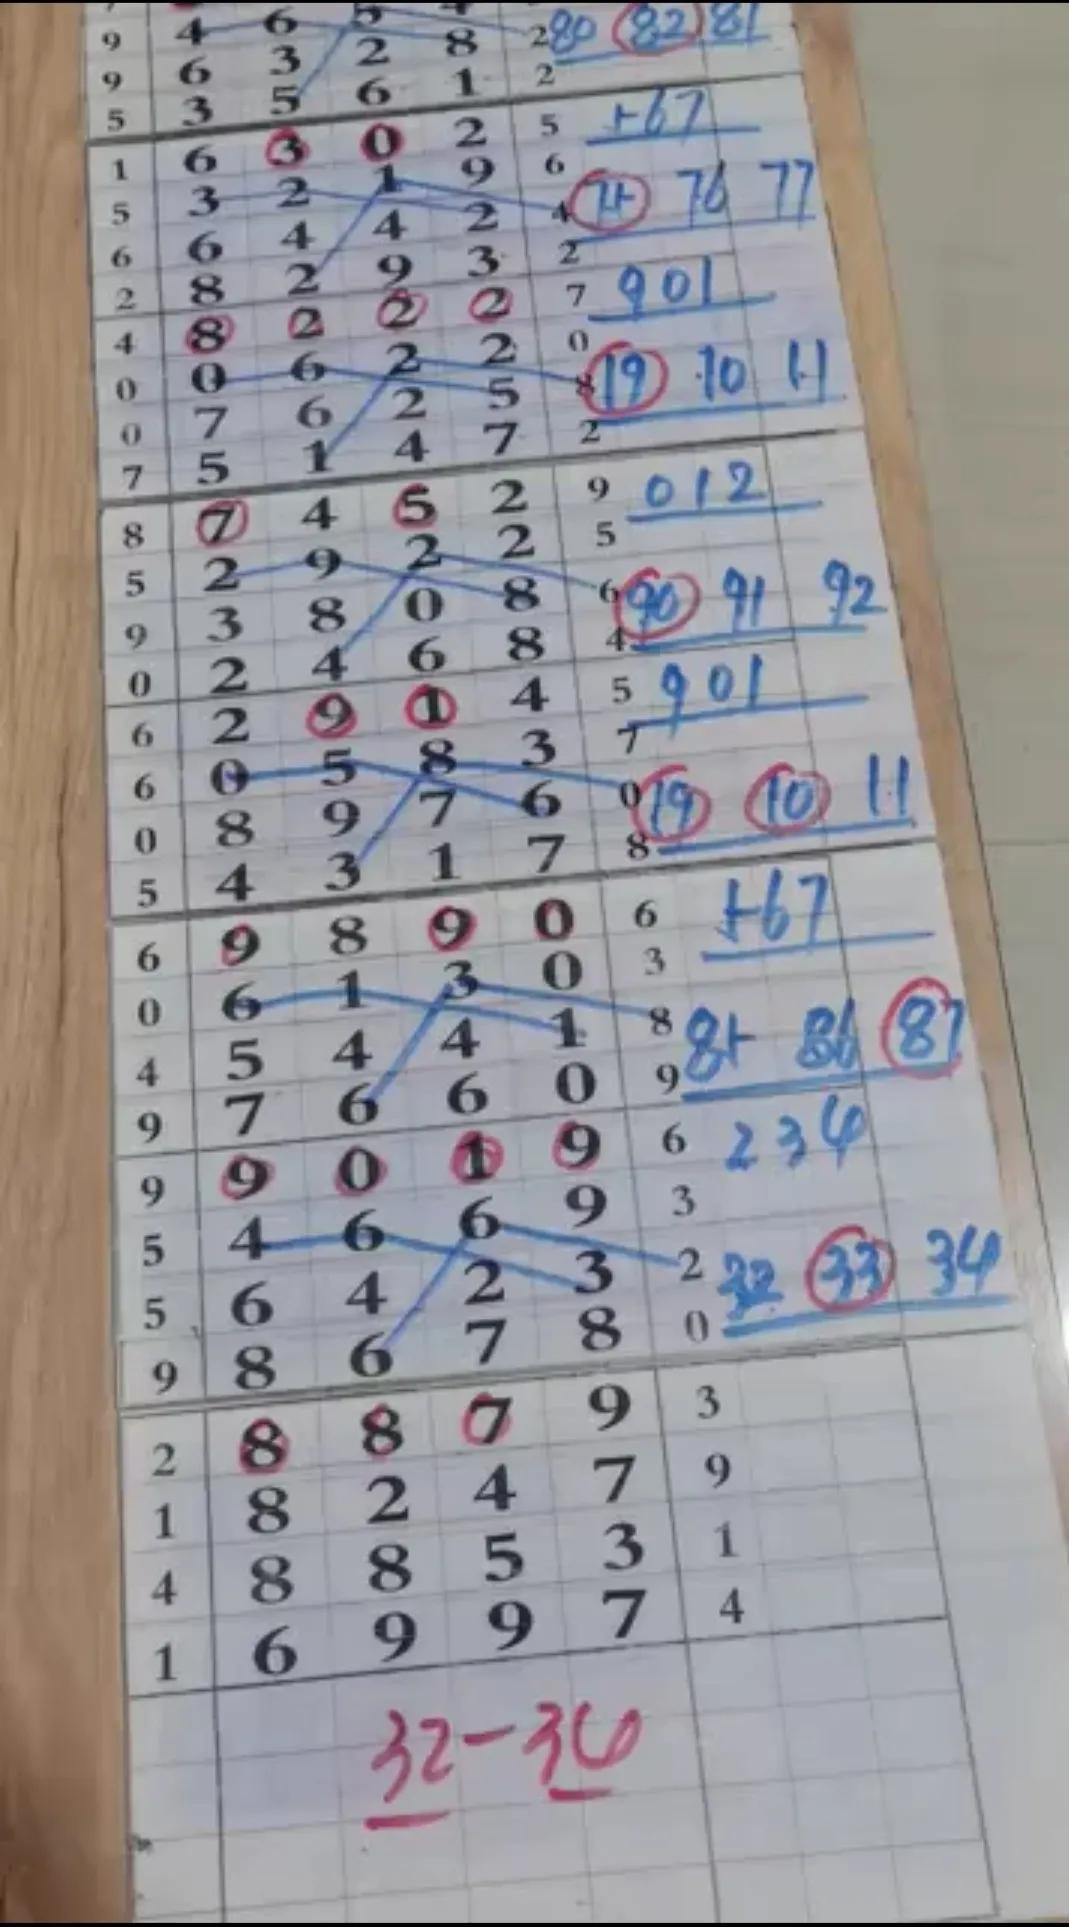 9 4 6 5 8 2 80 82 81
9 6 3 2 8 2
5 3 5 6 1
1 6 3 0 2 5 +67
5 3 2 1 9 6
6 6 4 4 2 4 7+ 76 77
2 8 2 9 3 2
4 8 2 2 2 7 901
0 0 6 2 2 0
0 7 6 2 5 8 19 10 11
7 5 1 4 7 2
8 7 4 5 2 9 012
5 2 9 2 2 5
9 3 8 0 8 6 90 91 92
0 2 4 6 8 4
6 2 9 1 4 5 901
6 0 5 8 3 7
0 8 9 7 6 0 19 10 11
5 4 3 1 7 8
6 9 8 9 0 6 +67
0 6 1 3 0 3
4 5 4 4 1 8 8+ 86 87
9 7 6 6 0 9
9 9 0 1 9 6 234
5 4 6 6 9 3
5 6 4 2 3 2 32 33 34
9 8 6 7 8 0
2 8 8 7 9 3
1 8 2 4 7 9
4 8 8 5 3 1
1 6 9 9 7 4
32-34